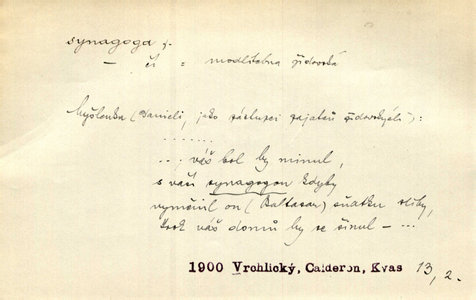 synagoga f.
— ži = modlitebna židovská
Myšlenka (Danieli, jako zástupci zajatců židovských):
. . . . . . .
... váš bol by minul,
s vaší synagogou kdyby
vyměnil on (Baltasar) sňatku sliby,
krok váš domů by se šinul – ...
1900 Vrchlický, Calderon, Kvas 13, 2.